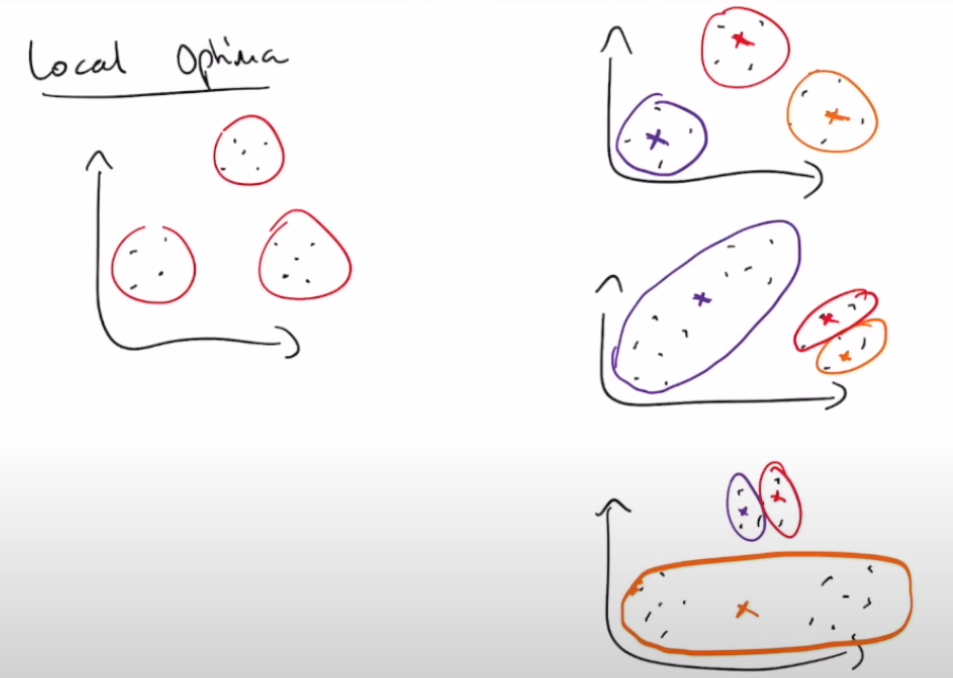 Local Optima